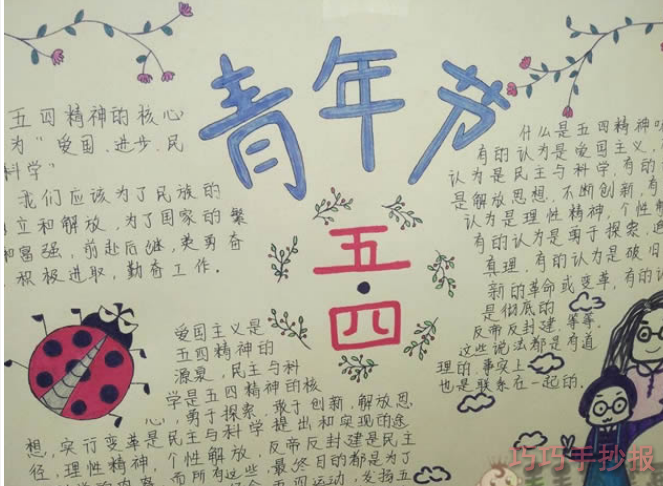 青年节
五·四
五四精神的核心
为"爱国、进步、民
科学"
我们应该为了民族的
立和解放,为了国家的繁
和富强,前赴后继,英勇奋
积极进取,勤奋工作.
什么是五四精神
有的认为是爱国主义,
认为是民主与科学,有的
是解放思想、不断创新,有
认为是理性精神,个性解
有的认为是勇于探索、追
真理、有的认为是破旧
新的革命或变革,有的认
是彻底的
反帝反封建,等等.
这些说法都是有道
理的,事实上
也是联系在一起的.
爱国主义是
五四精神的
源泉,民主与科
学是五四精神的核
心,勇于探索、敢于创新、解放思
想,实行变革是民主与科学提出和实现的途
径,理性精神,个性解放,反帝反封建是民主
而所有这些,最终目的都是为了
五四运动,发扬五
巧巧手抄报